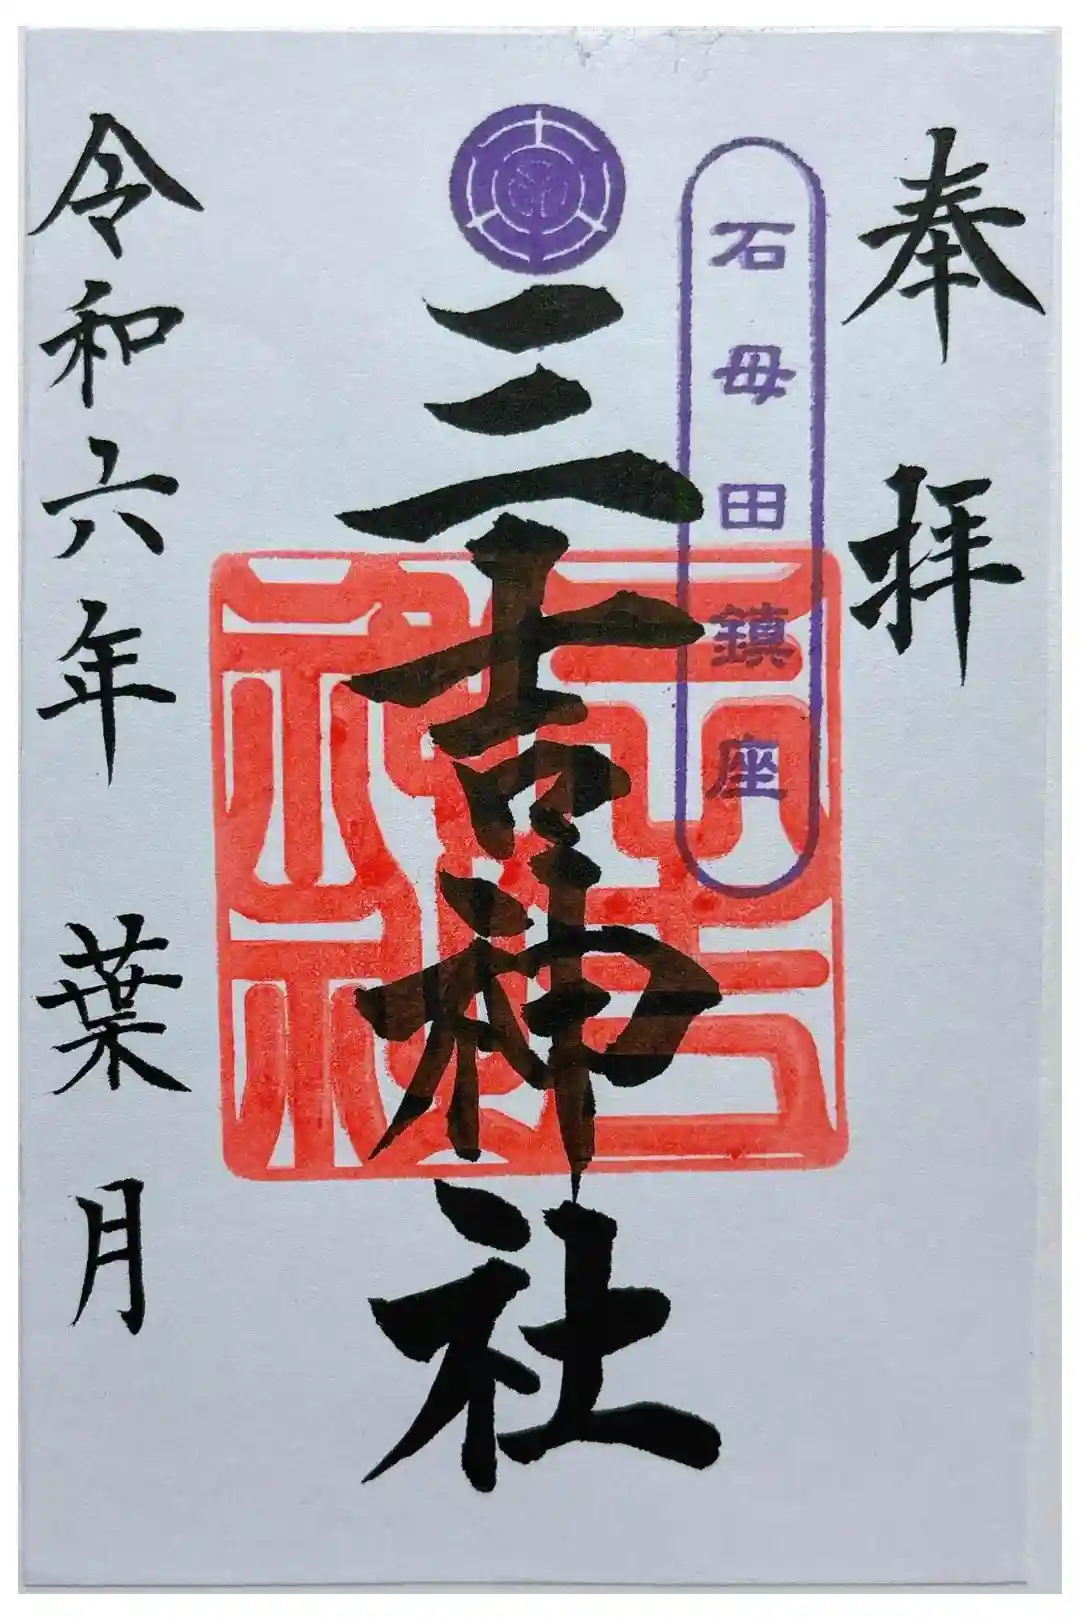 奉拝
石母田鎮座
三吉神社
三吉神社
令和六年 葉月